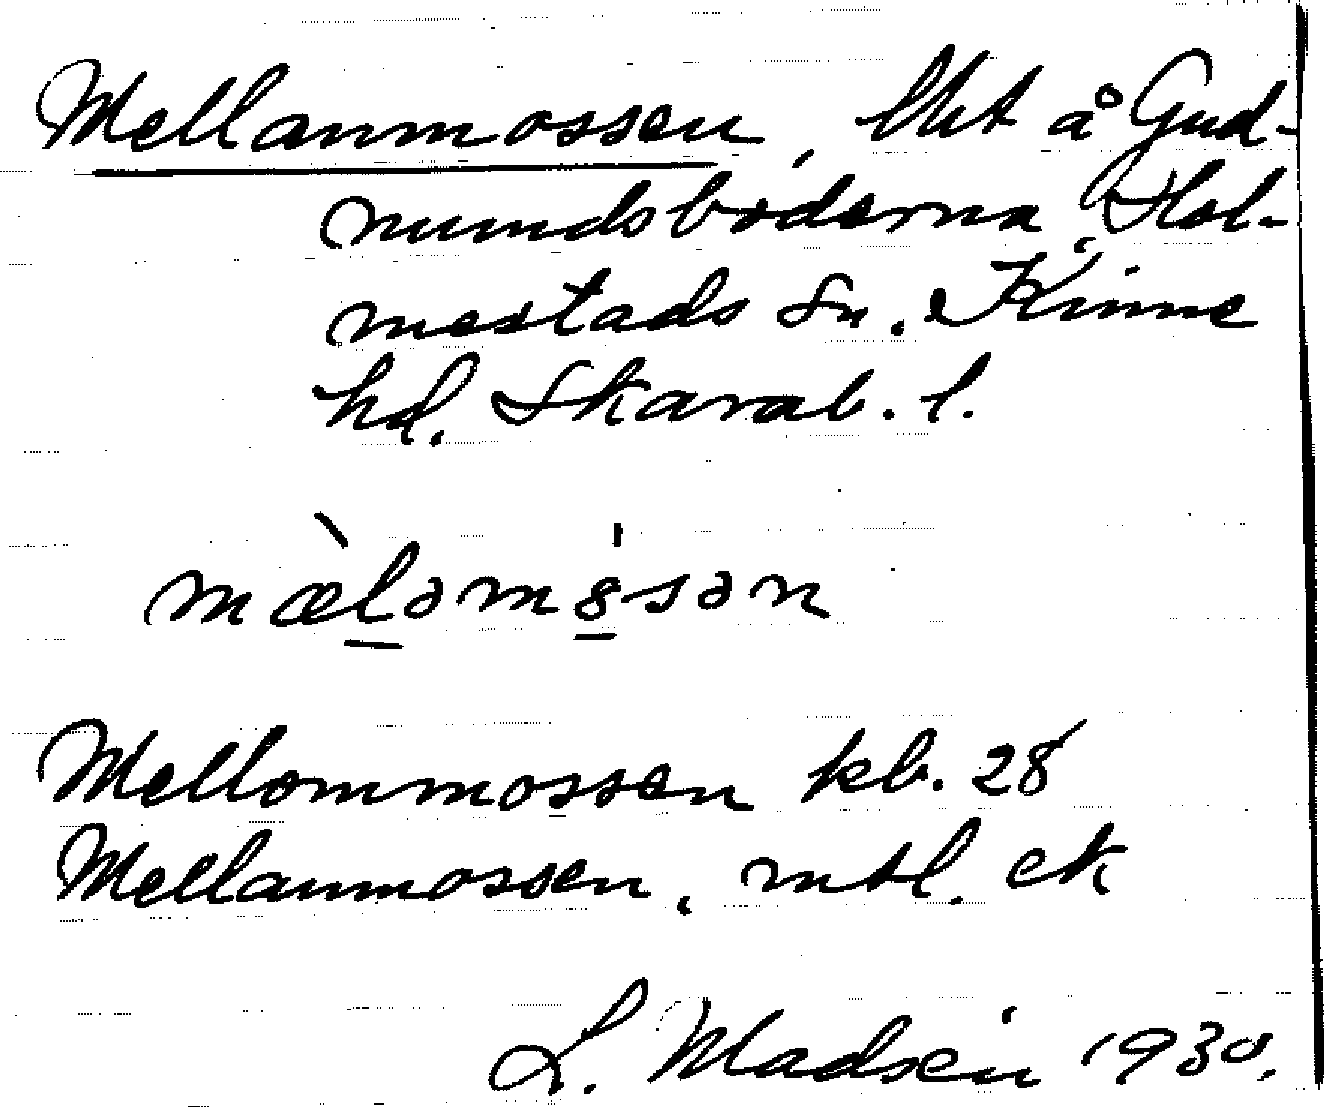 Mellanmossen, lht å Gud-
mundsboderna, Hol-
mestads sn. Kinne
hd. Skarab. l.
mæ̀lǝmȯsǝn
Mellommossen kb. 28
Mellanmossen, mtl. ek
L. Madsén 1930.